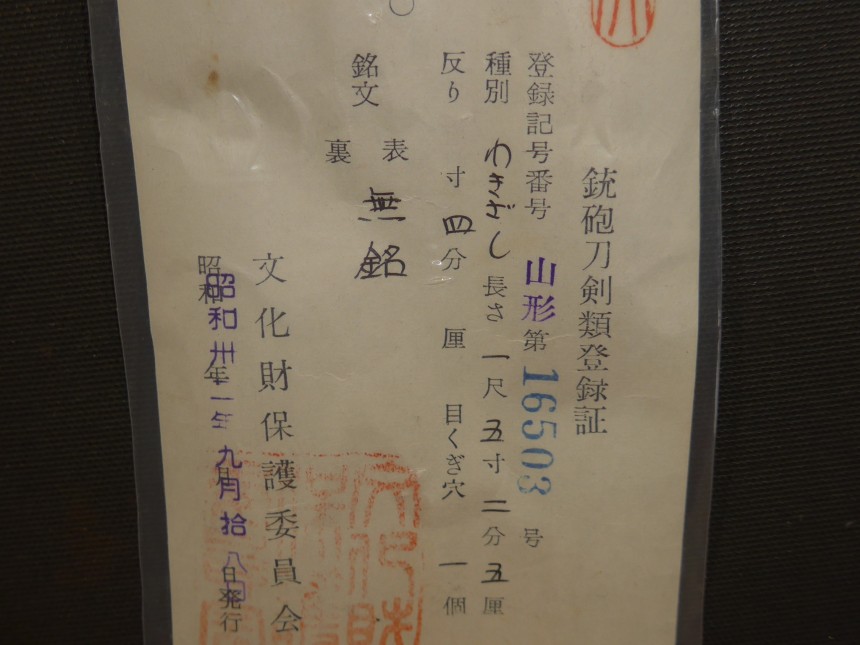 銃砲刀剣類登録証
登録記号番号 山形 第 16503 号
種別 わきざし 長さ 一尺 五寸 二分 五厘
反り 寸 四分 厘 目くぎ穴 一個
銘文 表 無銘
裏
文化財保護委員会
昭和 年 月 日発行
昭和卅一年九月拾八日